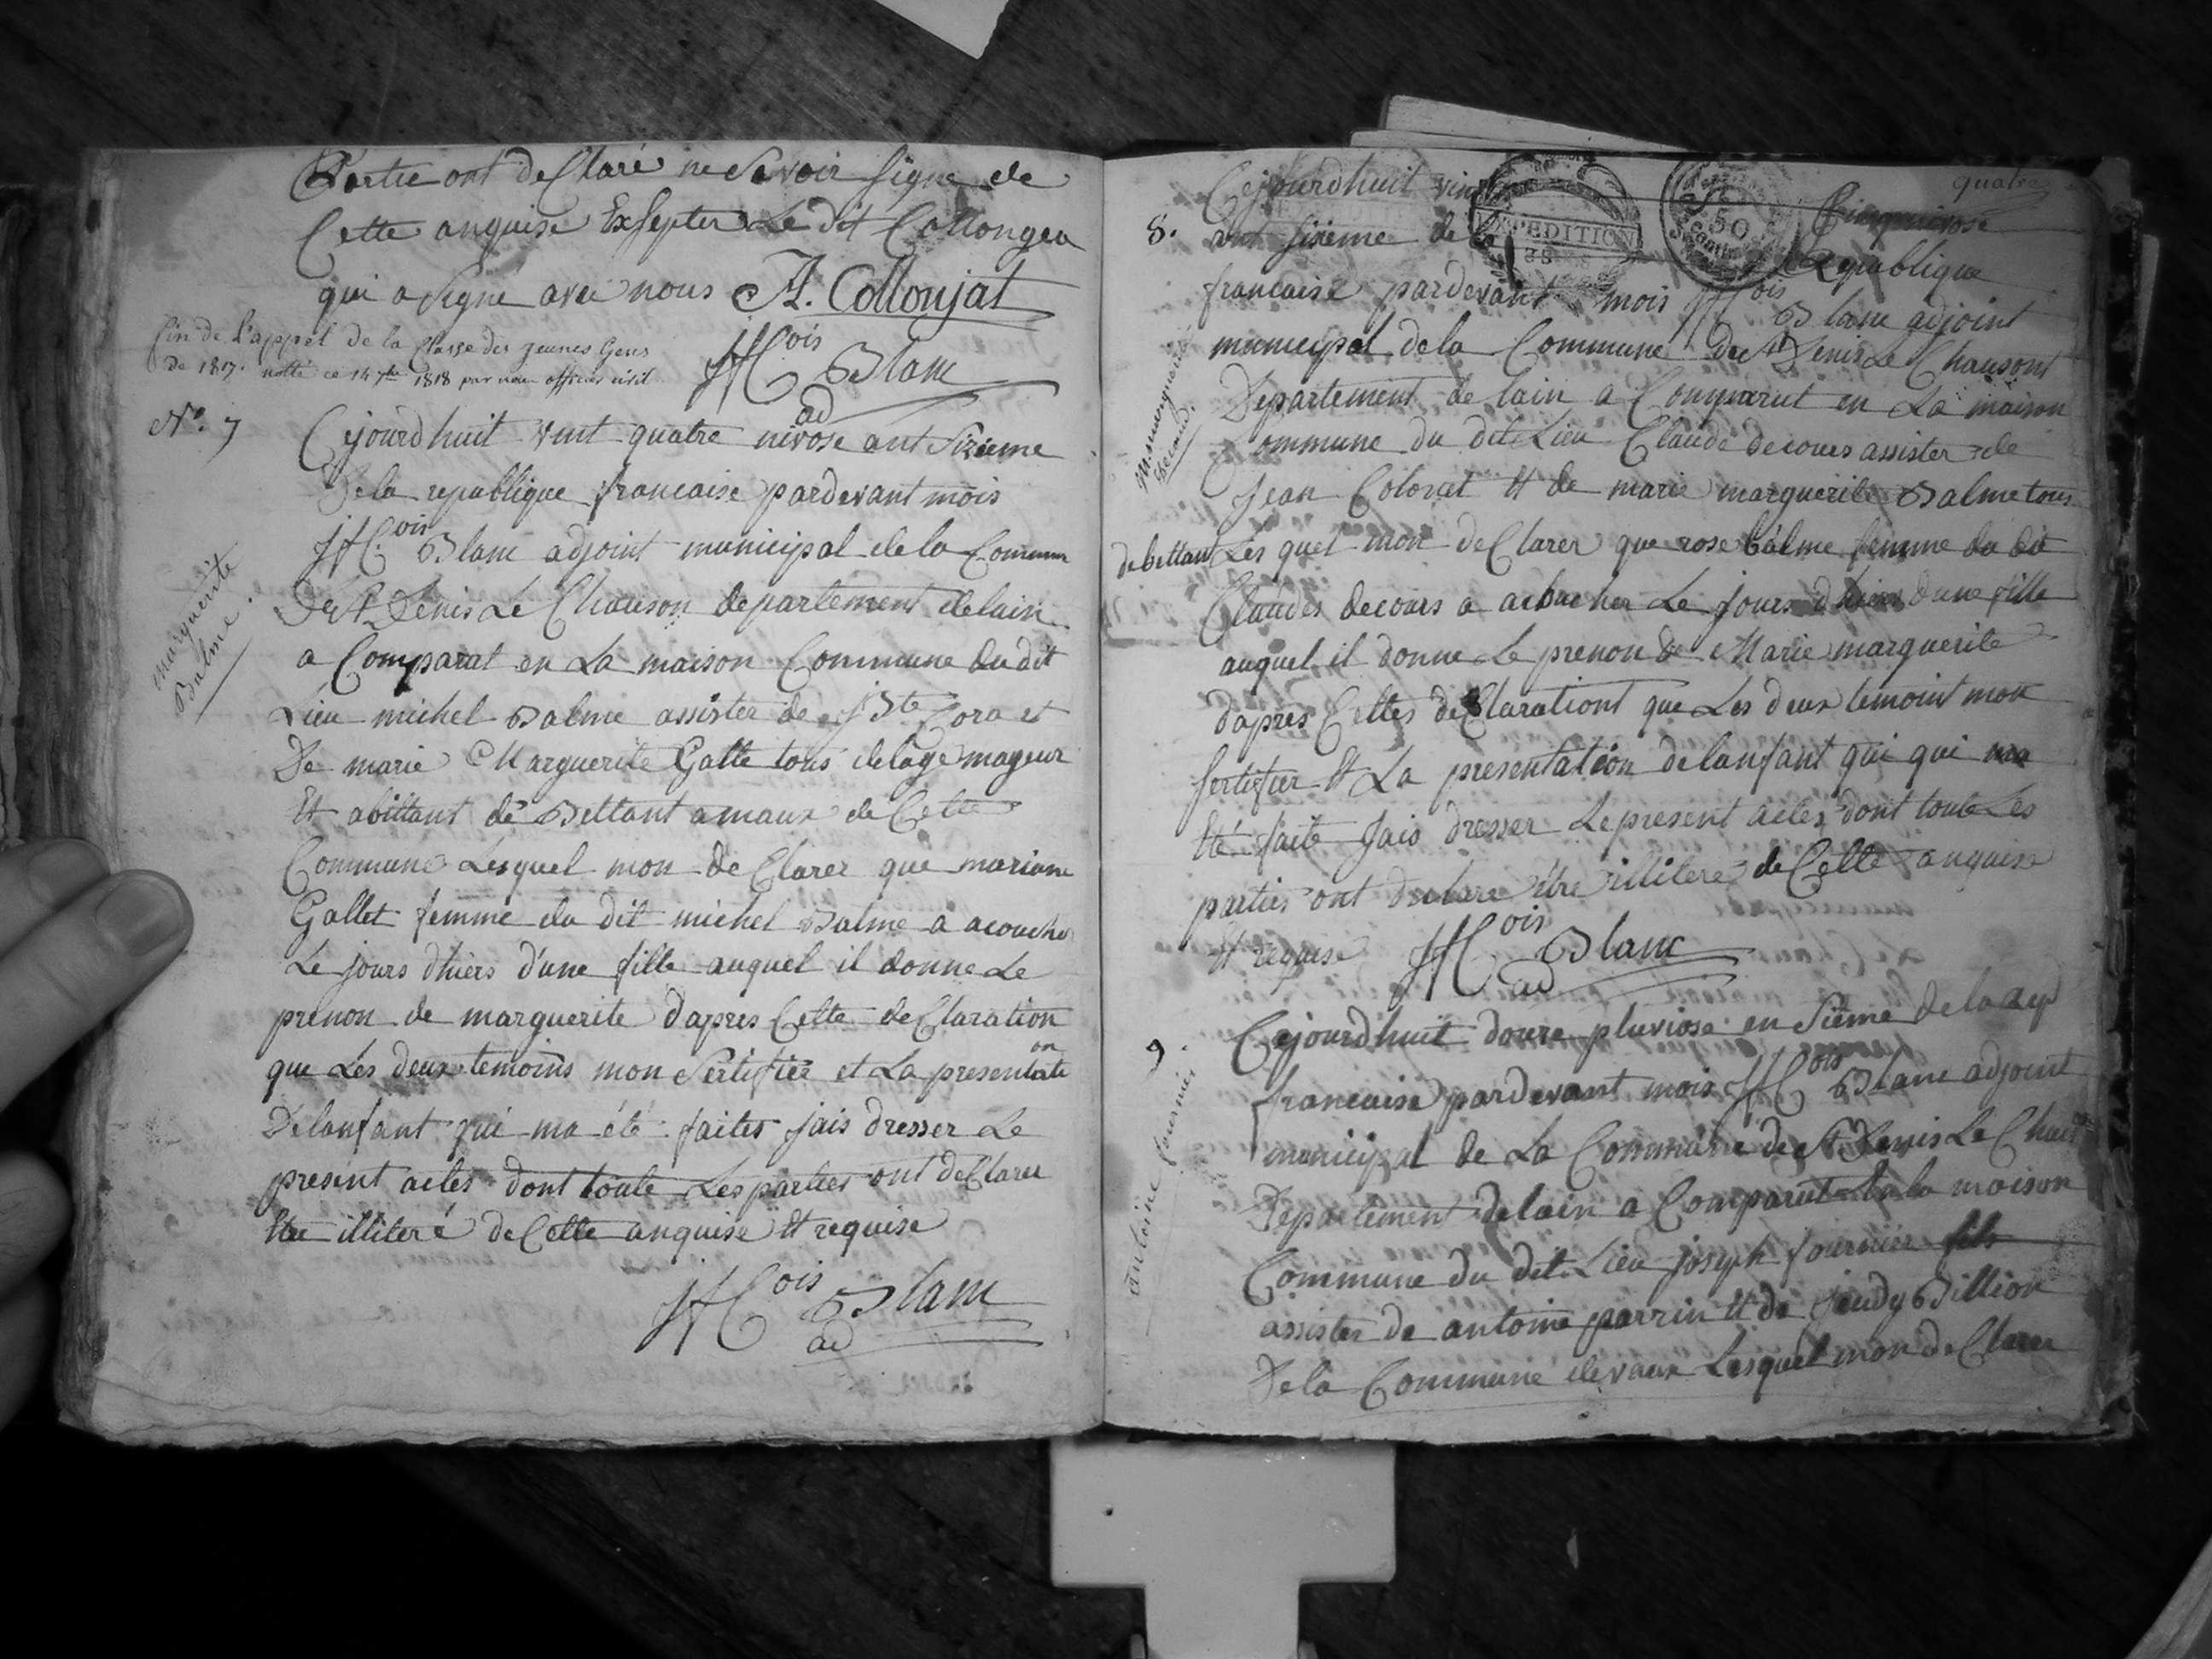 Partie ont de Claré ne Savoir Signe de
Cette anquise Exsepter Le dit Collongea
qui a Signé avec nous A. Collonjat
fin de l'appel de la Classe des jeunes Gens
de 1817. notté ce 14 7bre 1818 par nous officier civil
JHCois Blanc
ad
N°. 7
marguerite
Balme.
Cejourdhuit vint quatre nivose ant Sixieme
De la republique francaise pardevant mois
JHCois Blanc adjoint municipal de la Commune
De St Denis Le Chauson departement de lain
a Comparat en La maison Commune du dit
Lieu michel Balme assister de jBte Cora et
De marie Marguerite Galte tous de lage mageur
Et abittant de Bettant amaux de Cette
Commune Lesquel mon de Clarer que mariane
Gallet femme du dit michel Balme a acoucher
Le jours dhiers d'une fille auquel il donne Le
prenon de marguerite d'apres Cette de Claration
que Les deux temoins mon Sertifier et La presentate
on
De lanfant qui ma été faites jais dresser Le
present actes dont toute Les parties ont de Clarer
Etre illiteré de Cette anquise Et requise
JHCois Blanc
ad
quatre
8.
m. marguerite
Decour.
Cejourdhuit vin
ant Sixieme de la Republique
EXPEDITION
50
francaise pardevant mois JHCois Blanc adjoint
municipal de la Commune De St Denis Le Chausont
Departement de lain a Comparut en La maison
Commune du dit Lieu Claude decours assister de
Jean Colovret Et de marie marguerite Balme tous
de bettant Les quel mon de Clarer que rose balme femme du dit
Claudes decours a acbucher Le jours dhiers dune fille
auquel il donne Le prenon de Marie marguerite
dapres Cettes de Clarationt que Les deux temoint mon
Sertifier Et La presentation de lanfant qui qui ma
Eté faite Jais dresser Le present actes dont toute Les
parties ont declare être illitere de Cette anquise
Et requise JHCois Blanc
ad
9.
antoine fournier
Cejourdhuit douxe pluviose en Sieme de la rep
francaise pardevant mois JHCois Blanc adjoint
municipal de La Commune de St Denis Le Chau
Departement de lain a Comparut En la maison
Commune du dit Lieu joseph fournier fils
assister de antoine perrin Et de jeudy Billion
De la Commune de vaux Lesquel mon de Clarer